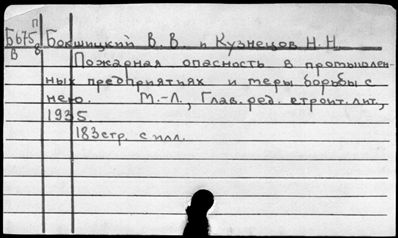 П
Б675 Бокшицкий В. В. и Кузнецов Н. Н.
В 8 Пожарная опасность в промышлен-
ных предприятиях и меры борьбы с
нею. М.-Л., Глав. ред. строит. лит.,
1935.
183 стр. с илл.